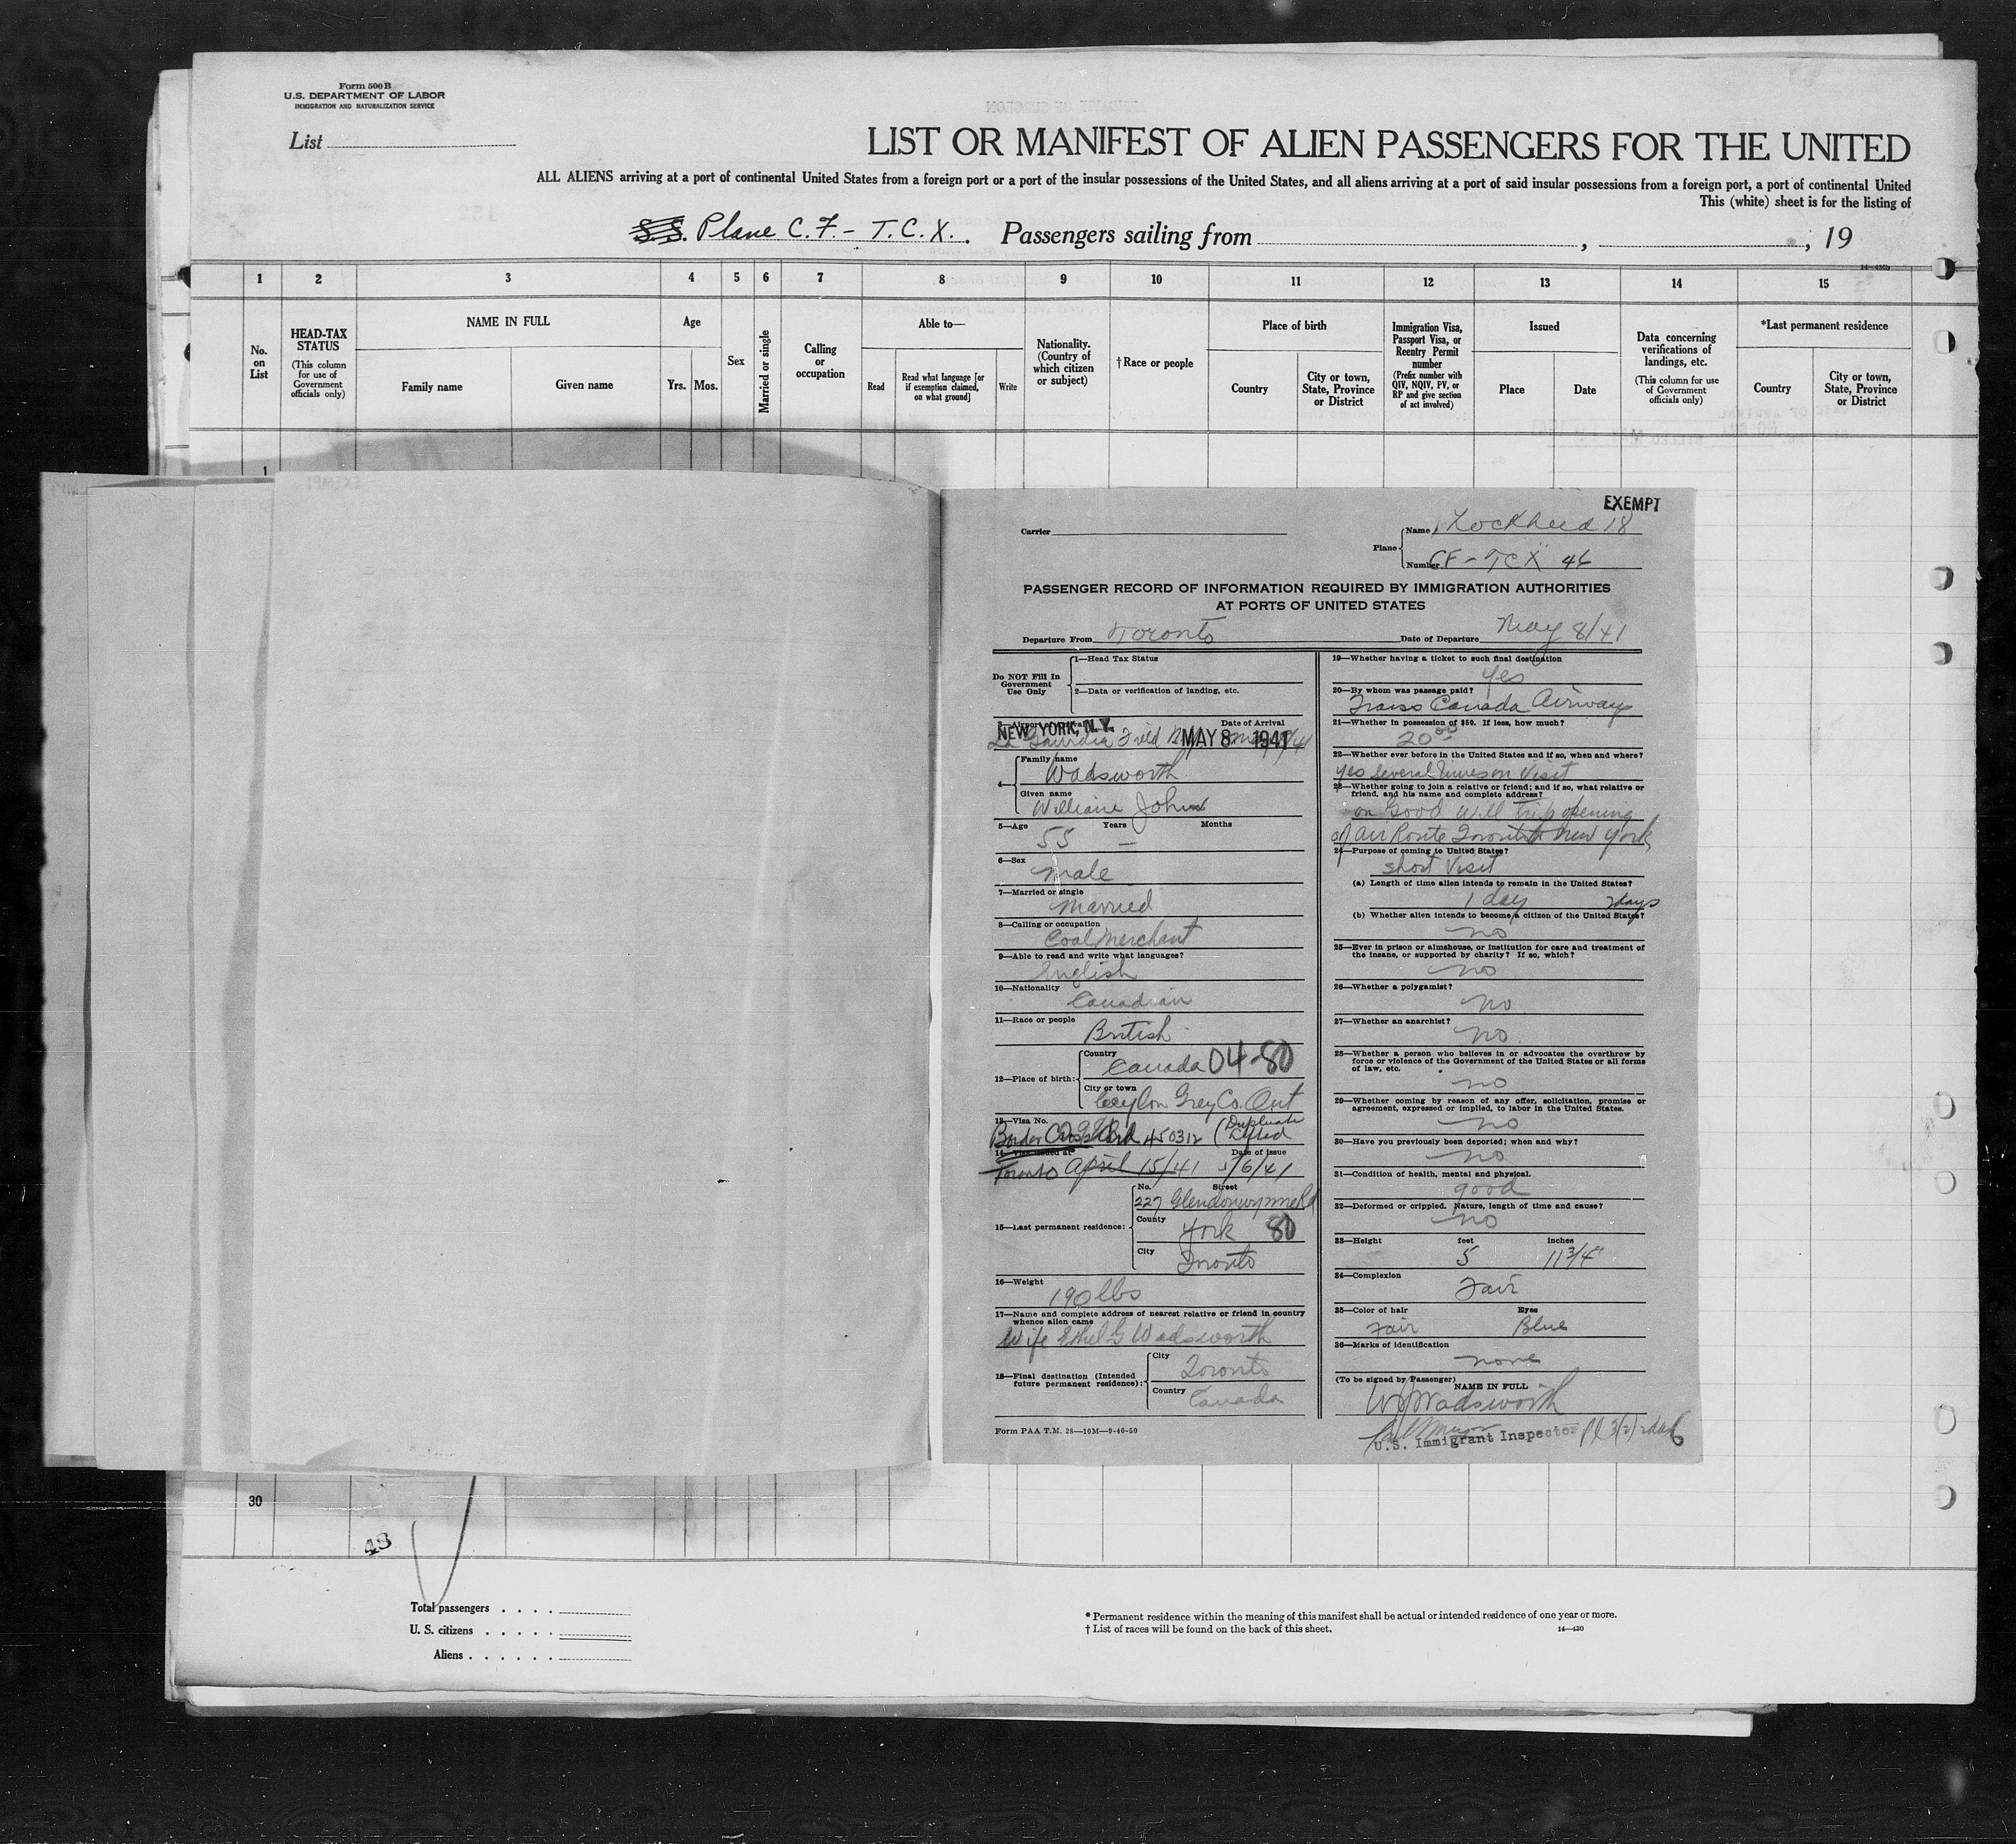 Form 500 B
U.S. DEPARTMENT OF LABOR
IMMIGRATION AND NATURALIZATION SERVICE
List
LIST OR MANIFEST OF ALIEN PASSENGERS FOR THE UNITED
ALL ALIENS arriving at a port of continental United States from a foreign port or a port of the insular possessions of the United States, and all aliens arriving at a port of said insular possessions from a foreign port, a port of continental United
This (white) sheet is for the listing of
S.S. Plane C.F.- T.C.X. Passengers sailing from , , 19
14-430b
1 2 3 4 5 6 7 8 9 10 11 12 13 14 15
No. on List
HEAD-TAX STATUS
(This column for use of Government officials only)
NAME IN FULL
Family name Given name
Age
Yrs. Mos.
Sex
Married or single
Calling or occupation
Able to—
Read
Read what language [or if exemption claimed, on what ground]
Write
Nationality. (Country of which citizen or subject)
†Race or people
Place of birth
Country
City or town, State, Province or District
Immigration Visa, Passport Visa, or Reentry Permit number
(Prefix number with QIV, NQIV, PV, or RP and give section of act involved)
Issued
Place Date
Data concerning verifications of landings, etc.
(This column for use of Government officials only)
*Last permanent residence
Country
City or town, State, Province or District
1
EXEMPT
Carrier
Plane
Name Lockheed 18
Number CF-TCX 46
PASSENGER RECORD OF INFORMATION REQUIRED BY IMMIGRATION AUTHORITIES
AT PORTS OF UNITED STATES
Departure From Toronto Date of Departure May 8/41
Do NOT Fill In Government Use Only
1—Head Tax Status
2—Data or verification of landing, etc.
3—Airport of arrival Date of Arrival
NEW YORK, N.Y. MAY 8 1941
La Gaurdia Field
4—
Family name
Wadsworth
Given name
William John
5—Age Years Months
55 —
6—Sex
male
7—Married or single
Married
8—Calling or occupation
Coal Merchant
9—Able to read and write what languages?
English
10—Nationality
Canadian
11—Race or people
British
12—Place of birth:
Country
Canada 04-80
City or town
Ceylon Grey Co. Ont
13—Visa No.
Border Crossing Card 450312 (Duplicate Lifted
14—Visa issued at Date of issue
Toronto April 15/41 5/6/41
15—Last permanent residence:
No. Street
227 Glendonwynne Rd
County
York 80
City
Toronto
16—Weight
190 lbs
17—Name and complete address of nearest relative or friend in country
whence alien came
Wife Ethel G Wadsworth
18—Final destination (Intended
future permanent residence):
City
Toronto
Country
Canada
Form PAA T.M. 28—10M—9-40-50
19—Whether having a ticket to such final destination
Yes
20—By whom was passage paid?
Trans Canada Airways
21—Whether in possession of $50. If less, how much?
20 00
22—Whether ever before in the United States and if so, when and where?
Yes several times on Visit
23—Whether going to join a relative or friend; and if so, what relative or
friend, and his name and complete address?
on Good Will Trip opening
of Air Route Toronto to New York
24—Purpose of coming to United States?
short Visit
(a) Length of time alien intends to remain in the United States?
1 day 2 days
(b) Whether alien intends to become a citizen of the United States?
no
25—Ever in prison or almshouse, or institution for care and treatment of
the insane, or supported by charity? If so, which?
no
26—Whether a polygamist?
No
27—Whether an anarchist?
no
28—Whether a person who believes in or advocates the overthrow by
force or violence of the Government of the United States or all forms
of law, etc.
no
29—Whether coming by reason of any offer, solicitation, promise or
agreement, expressed or implied, to labor in the United States.
no
30—Have you previously been deported; when and why?
no
31—Condition of health, mental and physical.
good
32—Deformed or crippled. Nature, length of time and cause?
no
33—Height feet inches
5 11 3/4
34—Complexion
Fair
35—Color of hair Eyes
Fair Blue
36—Marks of identification
none
(To be signed by Passenger)
NAME IN FULL
W J Wadsworth
U.S. Immigrant Inspector
30
48
Total passengers
U. S. citizens
Aliens
* Permanent residence within the meaning of this manifest shall be actual or intended residence of one year or more.
† List of races will be found on the back of this sheet. 14—430